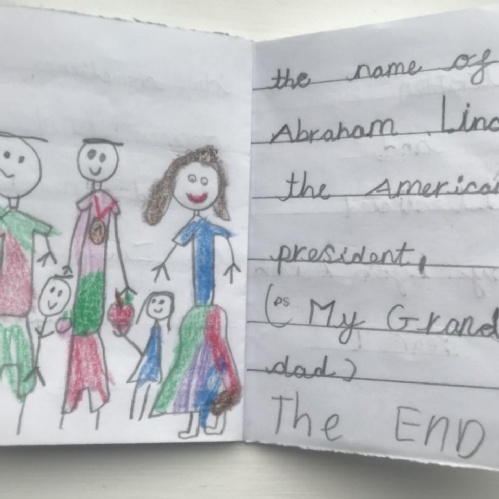 the name of
Abraham Linc
the America
president,
(PS My Grand
dad)
The END